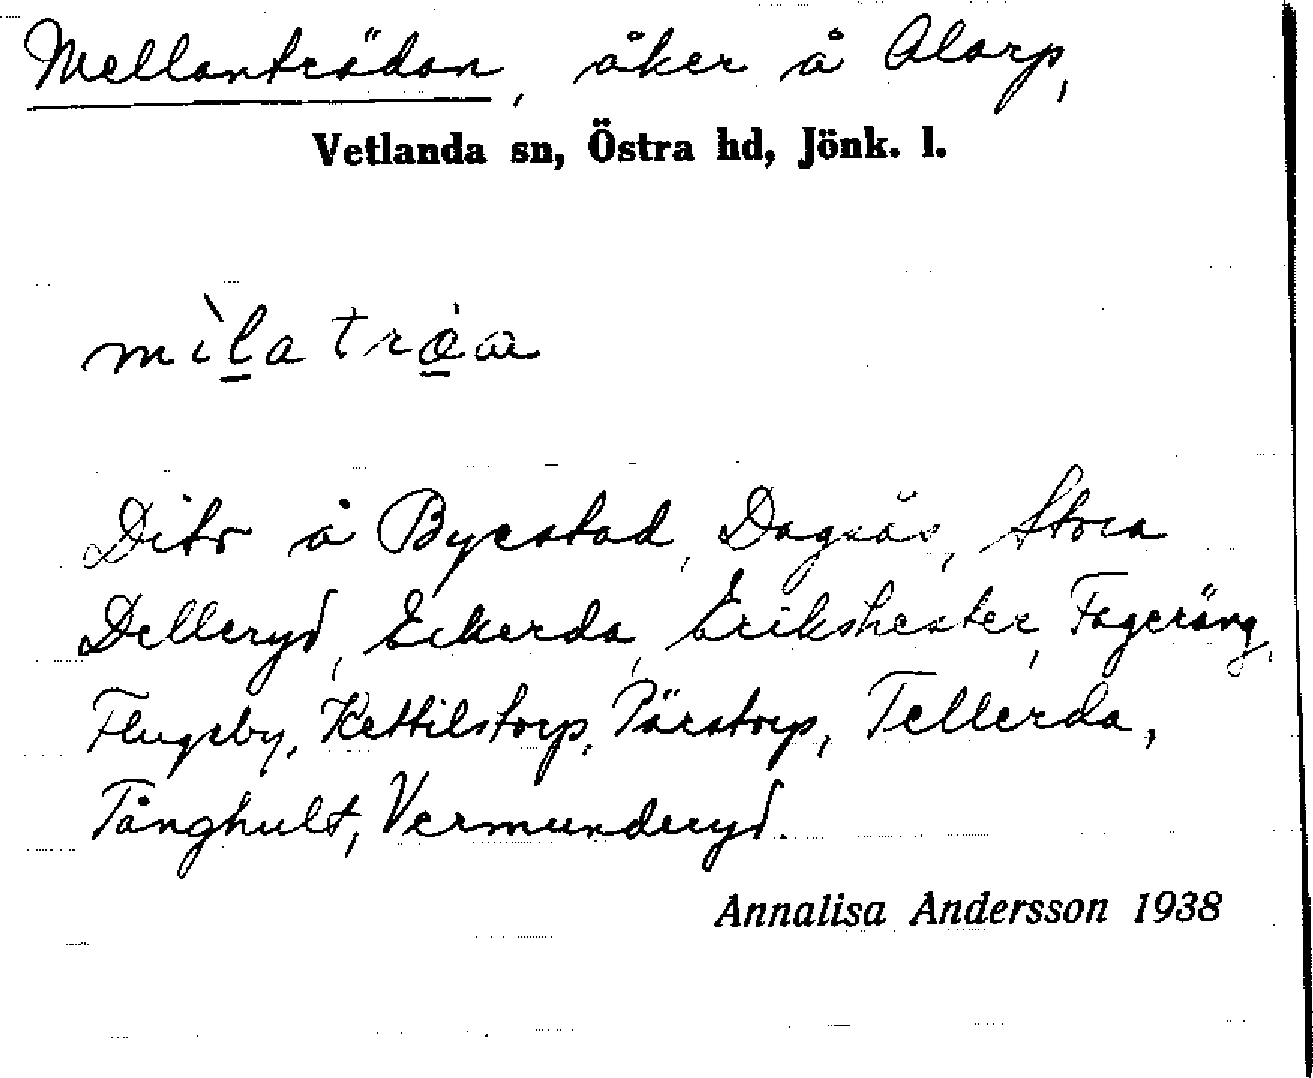 Mellanträdan, åker å Alarp,
Vetlanda sn, Östra hd, Jönk. l.
mìlatròa
Dito å Byestad, Dagsås, Stora
Delleryd, Eckerda, Erikshester, Fageräng,
Flugeby, Kettilstorp, Pärstorp, Tellerda,
Tånghult, Vermunderyd.
Annalisa Andersson 1938